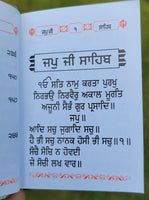 ਜਪੁ ਜੀ
੧
ਸਾਹਿਬ
ਜਪੁ ਜੀ ਸਾਹਿਬ
ੴ ਸਤਿ ਨਾਮੁ ਕਰਤਾ ਪੁਰਖੁ
ਨਿਰਭਉ ਨਿਰਵੈਰੁ ਅਕਾਲ ਮੂਰਤਿ
ਅਜੂਨੀ ਸੈਭੰ ਗੁਰ ਪ੍ਰਸਾਦਿ॥
ਜਪੁ॥
ਆਦਿ ਸਚੁ ਜੁਗਾਦਿ ਸਚੁ॥
ਹੈ ਭੀ ਸਚੁ ਨਾਨਕ ਹੋਸੀ ਭੀ ਸਚੁ॥੧॥
ਸੋਚੈ ਸੋਚਿ ਨ ਹੋਵਈ
ਜੇ ਸੋਚੀ ਲਖ ਵਾਰ॥